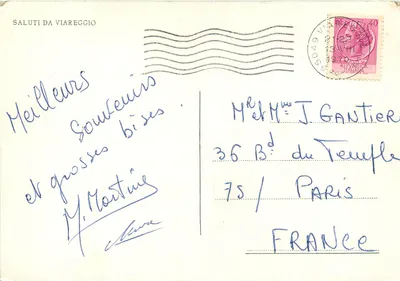 SALUTI DA VIAREGGIO
40
Meilleurs
souvenirs
et grosses bises.
M. Martine
Mr et Mme J. GANTIER
36 Bd du Temple
75 / PARIS
FRANCE